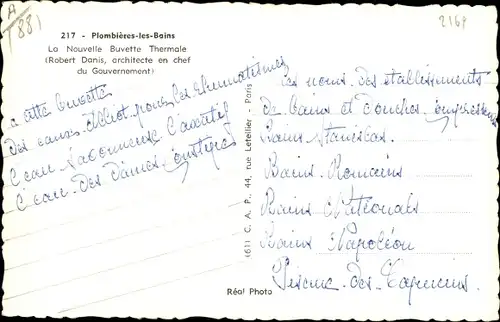 A
(88)
2168
217 - Plombières-les-Bains
La Nouvelle Buvette Thermale
(Robert Danis, architecte en chef
du Gouvernement)
a cette buvette
Des eaux pour les Rhumatismes
l'eau Savonneuse Laxatif
l'eau des Dames
(61) C. A. P., 44, rue Letellier - Paris
Les noms des établissements
De bains et douches
Bains Stanislas
Bains Romains
Bains Nationals
Bains Napoléon
Piscine des Capucins
Réal Photo